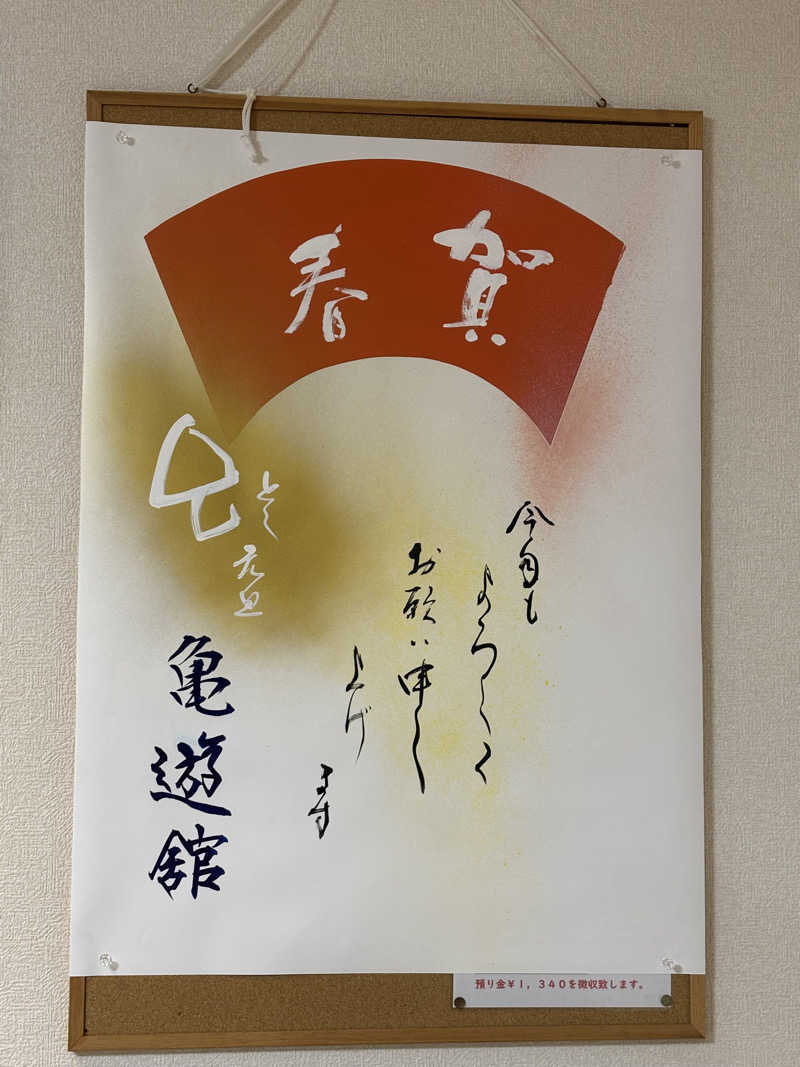 賀春
今年も
よろしく
お願い申し
上げ
ます
とし
元旦
亀遊舘
預り金¥1,340を徴収致します。